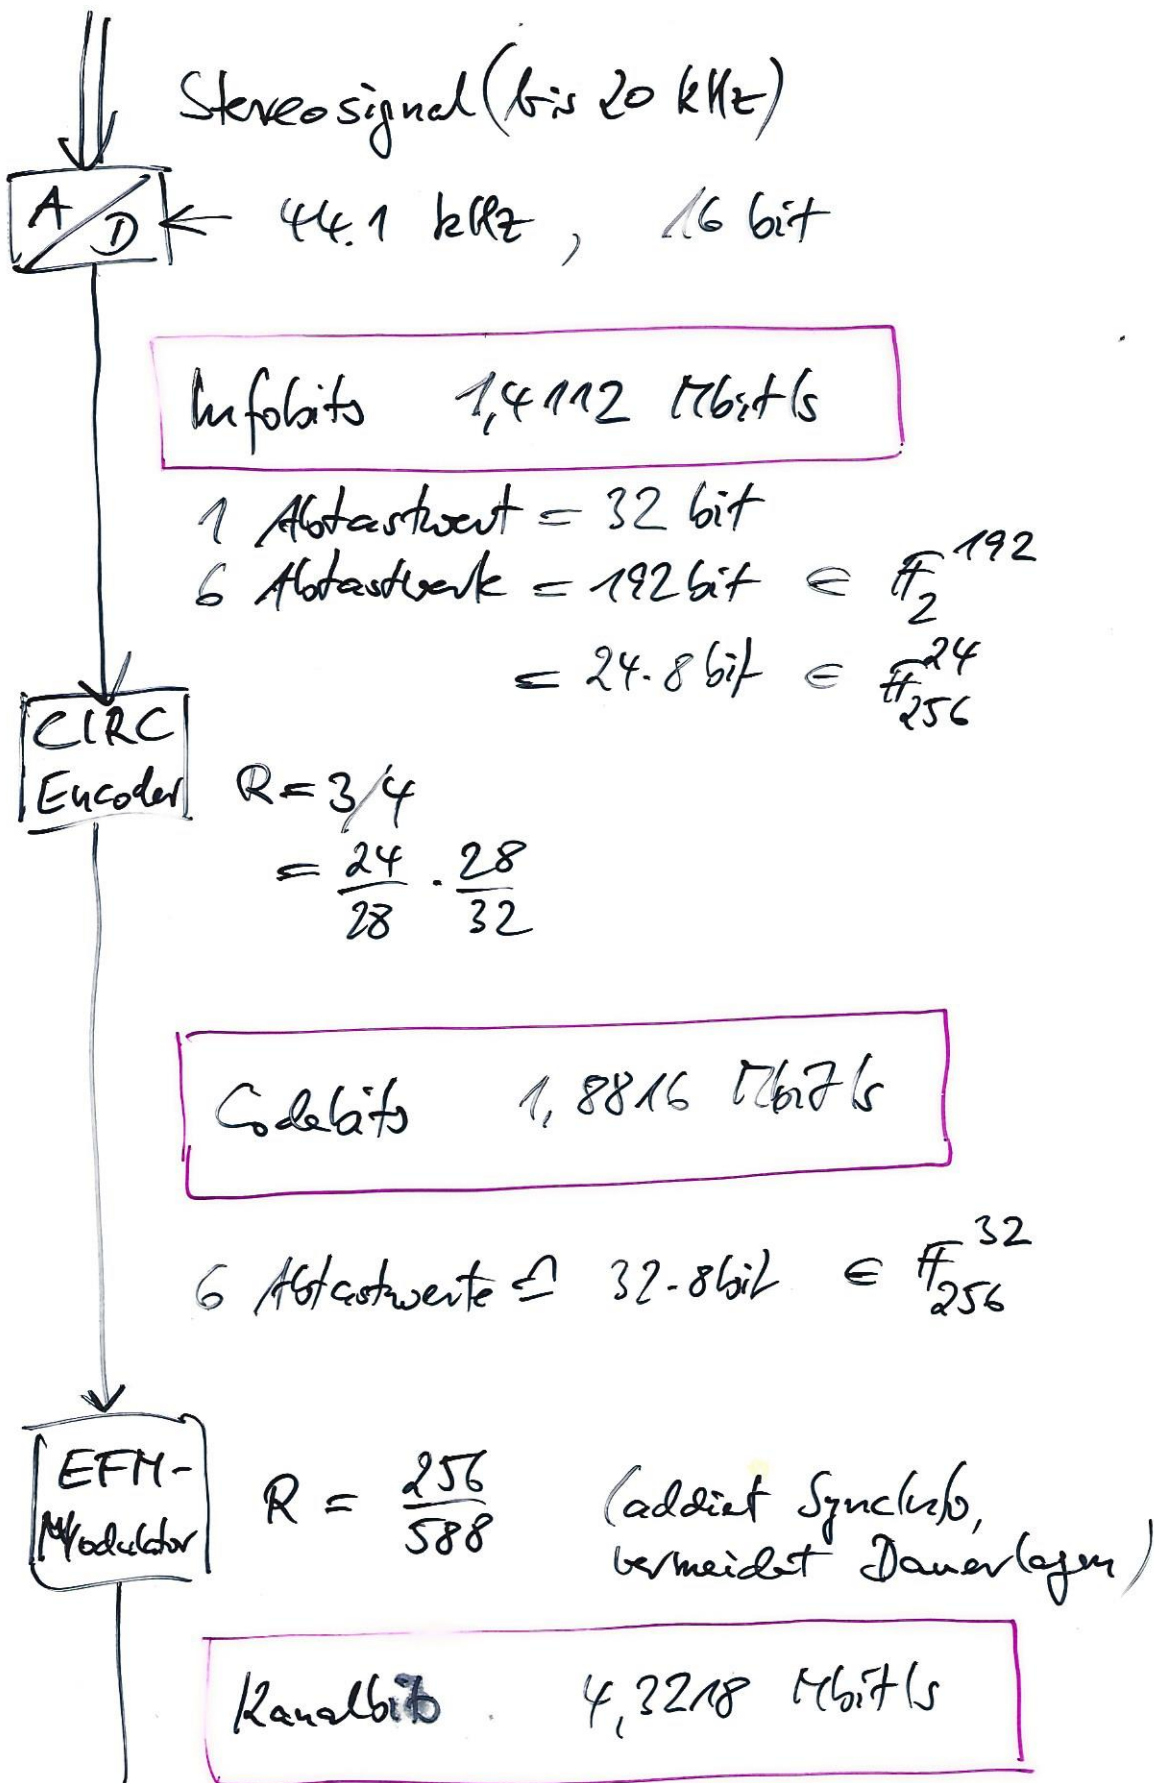 Stereosignal (bis 20 kHz)
A/D ← 44.1 kHz, 16 bit
Infobits 1,4112 Mbit/s
1 Abtastwert = 32 bit
6 Abtastwerte = 192 bit ∈ 𝔽₂¹⁹²
= 24·8 bit ∈ 𝔽₂₅₆²⁴
CIRC
Encoder
R = 3/4
= 24/28 · 28/32
Codebits 1,8816 Mbit/s
6 Abtastwerte ≙ 32·8 bit ∈ 𝔽₂₅₆³²
EFM-
Modulator
R = 256/588
(addiert SyncInfo,
vermeidet Dauerlagen)
Kanalbits 4,3218 Mbit/s